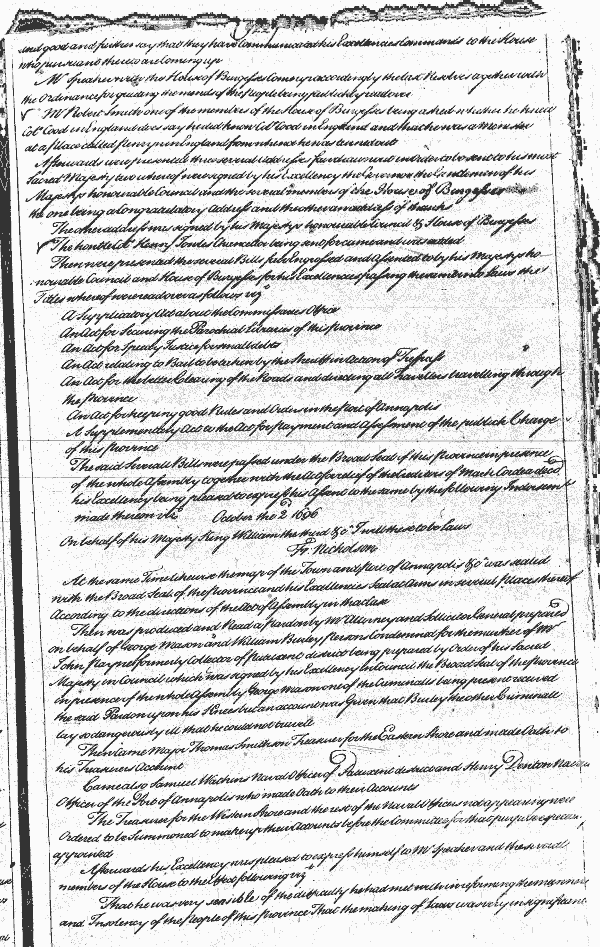 and good and further say that they have Communicated his Excellencies Commands to the House
who pursuant thereto are coming up
Mr Speaker with the House of Burgesses came up accordingly the late Resolves together with
the Ordinance for guiding the minds of the People being publickly read over
Mr Robert Smith one of the members of the House of Burgesses being asked whether he knew
Colo Cood in England does say he did know Colo Cood in England and that he was a Minister
at a place called Penryn in England from whence he was turned out
Afterwards were presented three several Addresses fairly drawn in order to be sent to his most
Sacred Majesty two whereof were signed by his Excellency the Governor the Gentlemen of his
Majestys honourable Council and the several members of the House of Burgesses
the one being a Congratulatory Address and the other an address of thanks
The other address was signed by his Majestys honourable Council & House of Burgesses
The honble Colo Henry Jowles Chancellor being sent for came and was seated
Then were presented the several Bills fully Engrossed and Assented to by his Majestys ho-
nourable Council and House of Burgesses for his Excellencies passing the same into Laws the
Titles whereof were read over as follows viz
A Supplicatory Act about the Commissarys Office
An Act for Securing the Parochial Libraries of this Province
An Act for Speedy Justice for small debts
An Act relating to Bail to be taken by the Sheriff in Action of Trespass
An Act for the better Clearing of the Roads and directing all Travellers travelling through
the Province
An Act for keeping good Rules and Orders in the Port of Annapolis
A Supplementary Act to the Act for Payment and Assessment of the publick Charge
of this Province
The said Several Bills were passed under the Broad Seal of this Province in presence
of the whole Assembly together with the Act for relief of the Creditors of Mach Cordea decd
his Excellency being pleased to express his Assent to the same by the following Indorsemt
made thereon viz October the 2d 1696
On behalf of his Majesty King William the third &c I will these to be Laws
Fr: Nicholson
At the same Time likewise the map of the Town and Port of Annapolis &c was sealed
with the Broad Seal of the Province and his Excellencies Seal at Arms in several places thereof
According to the directions of the Act of Assembly in that Case
Then was produced and Read a Pardon by Mr Attorney and Sollicitor General prepared
on behalf of George Mason and William Burley Persons Condemned for the murther of Mr
John Payne formerly Collector of Patuxent district being prepared by Order of his Sacred
Majesty in Council which was signed by his Excellency in Council the Broad Seal of the Province
in presence of the whole Assembly George Mason one of the Criminalls being present received
the said Pardon upon his Knees but an account was Given that Burley the other Criminall
lay so dangerously ill that he could not travele
Then Came Major Thomas Smithson Treasurer for the Eastern Shore and made Oath to
his Treasurers Account
Came also Samuel Watkins Naval Officer of Patuxent district and Henry Denton Naval
Officer of the Port of Annapolis who made Oath to their Accounts
The Treasurer for the Western Shore and the rest of the Naval Officers not appearing were
Ordered to be Summoned to make up their Accounts before the Committee for that purpose especially
appointed
Afterwards his Excellency was pleased to express himself to Mr Speaker and the several
members of the House to the Effect following viz
That he was very sensible of the difficulty he had met with in reforming the manners
and Insolency of the People of this Province That the making of Laws was very insignificant